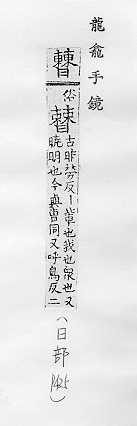 龍龕手鏡
俗
古昨勞反丨輩也我也衆也又
曉明也今與曹同又呼鳥反二
(日部 P425)